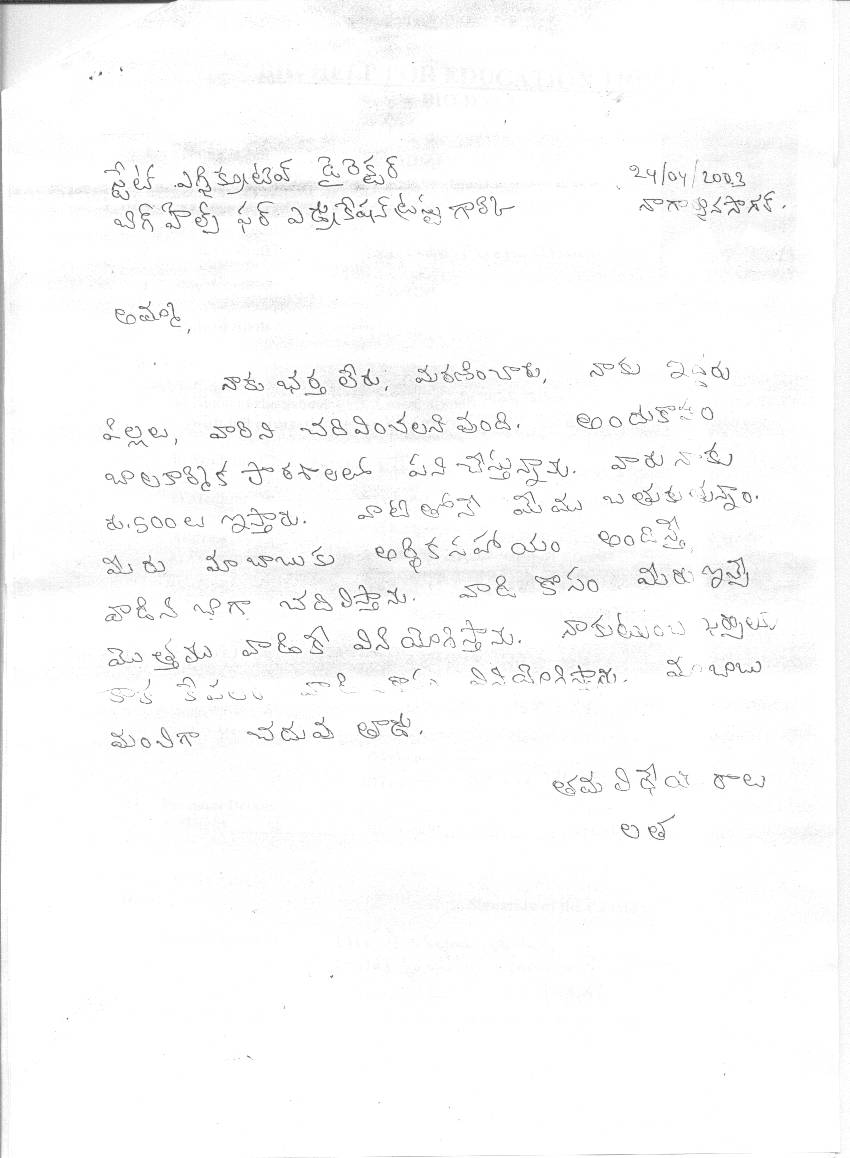 స్టేట్ ఎగ్జిక్యూటివ్ డైరెక్టర్ 24/04/2003
బిగ్ హెల్ప్ ఫర్ ఎడ్యుకేషన్ ట్రస్టు గారికి నాగార్జునసాగర్.
అమ్మా,
నాకు భర్త లేరు, మరణించారు, నాకు ఇద్దరు
పిల్లలు, వారిని చదివించలని వుంది. అందుకోసం
బాలకార్మిక పాఠశాలలో పని చేస్తున్నాను. వారు నాకు
రు.500లు ఇస్తారు. వాటితోనే మేము బతుకుతున్నాం.
మీరు మాబాబుకు ఆర్థిక సహాయం అందిస్తే,
వాడిని బాగా చదివిస్తాను. వాడి కోసం మీరు ఇచ్చే
మొత్తము వాడికే వినియోగిస్తాను. నాకుటుంబ ఖర్చులకు
కాక కేవలం వాడి వినియోగిస్తాను. మా బాబు
మంచిగా చదువుతాడు.
తమ విధేయురాలు
లత